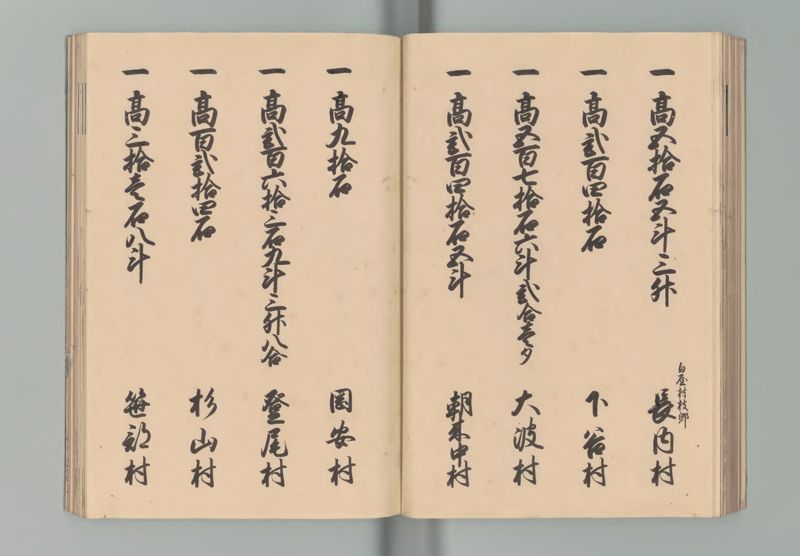 一 高五拾石五斗三升
白屋村枝郷
長内村
一 高弐百四拾石
下谷村
一 高五百七拾石六斗弐合壱夕
大波村
一 高弐百四拾石五斗
朝来中村
一 高九拾石
岡安村
一 高弐百六拾三石九斗三升八合
登尾村
一 高百弐拾四石
杉山村
一 高三拾壱石八斗
笹部村